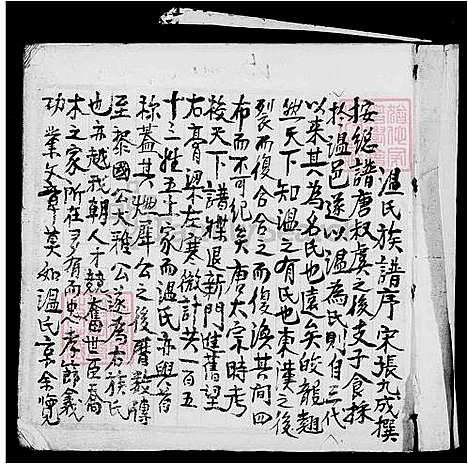 溫氏族譜序 宋張九成撰
按總譜唐叔虞之後支子食採
於溫邑遂以溫為氏則自三代
以來其為名氏也遠矣皎龍翹
然天下知溫之有氏也東漢之後
裂而復合合之而復渙其間四
布而不可紀矣唐太宗時考
校天下譜牒退新門進舊望
右膏梁左寒微計共一百五
十三姓五十家而溫氏亦與首
稱蓋其
公之後曆數傳
至黎國公大雅公遂為右族氏
也亦越我朝人才競奮世臣喬
木之家所在多有而忠孝節義
功業文章莫如溫氏素余覽